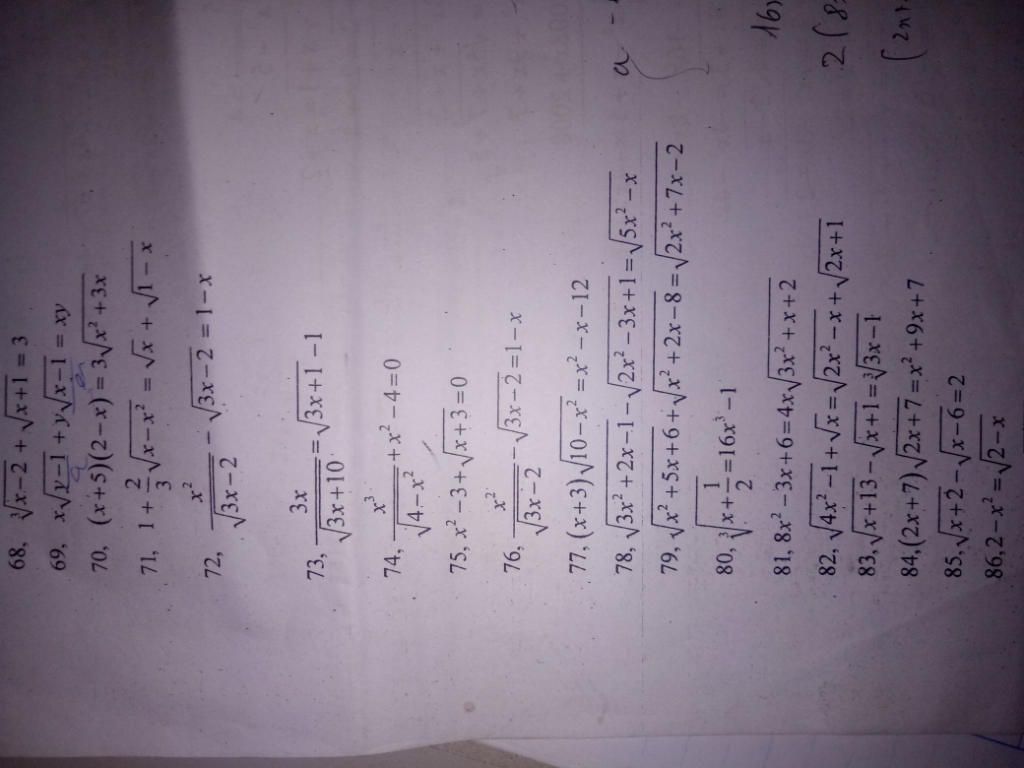 68, ∛(x−2) + √(x+1) = 3
69, x√(y−1) + y√(x−1) = xy
70, (x+5)(2−x) = 3√(x²+3x)
71, 1 + 2/3 √(x−x²) = √x + √(1−x)
72, x²/√(3x−2) − √(3x−2) = 1−x
73, 3x/√(3x+10) = √(3x+1) − 1
74, x³/√(4−x²) + x² − 4 = 0
75, x² − 3 + √(x+3) = 0
76, x²/√(3x−2) − √(3x−2) = 1−x
77, (x+3)√(10−x²) = x² − x − 12
78, √(3x²+2x−1) − √(2x²−3x+1) = √(5x²−x)
79, √(x²+5x+6) + √(x²+2x−8) = √(2x²+7x−2)
80, ∛(x+1/2) = 16x³ − 1
81, 8x² − 3x + 6 = 4x√(3x²+x+2)
82, √(4x²−1) + √x = √(2x²−x) + √(2x+1)
83, √(x+13) − √(x+1) = ∛(3x−1)
84, (2x+7)√(2x+7) = x² + 9x + 7
85, √(x+2) − √(x−6) = 2
86, 2 − x² = √(2−x)